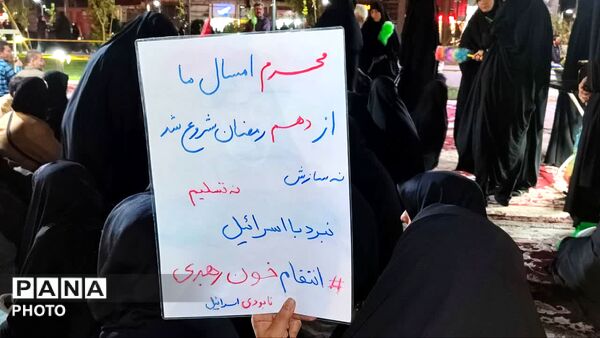 محرم امسال ما
از دهم رمضان شروع شد
نه سازش
نه تسلیم
نبرد با اسرائیل
#انتقام خون رهبری
نابودی اسرائیل
PANA
PHOTO